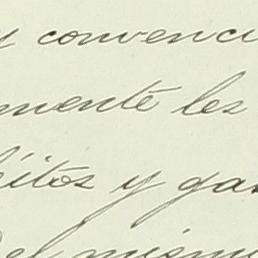 y convenci
mente les
éitos y gas
el mismo